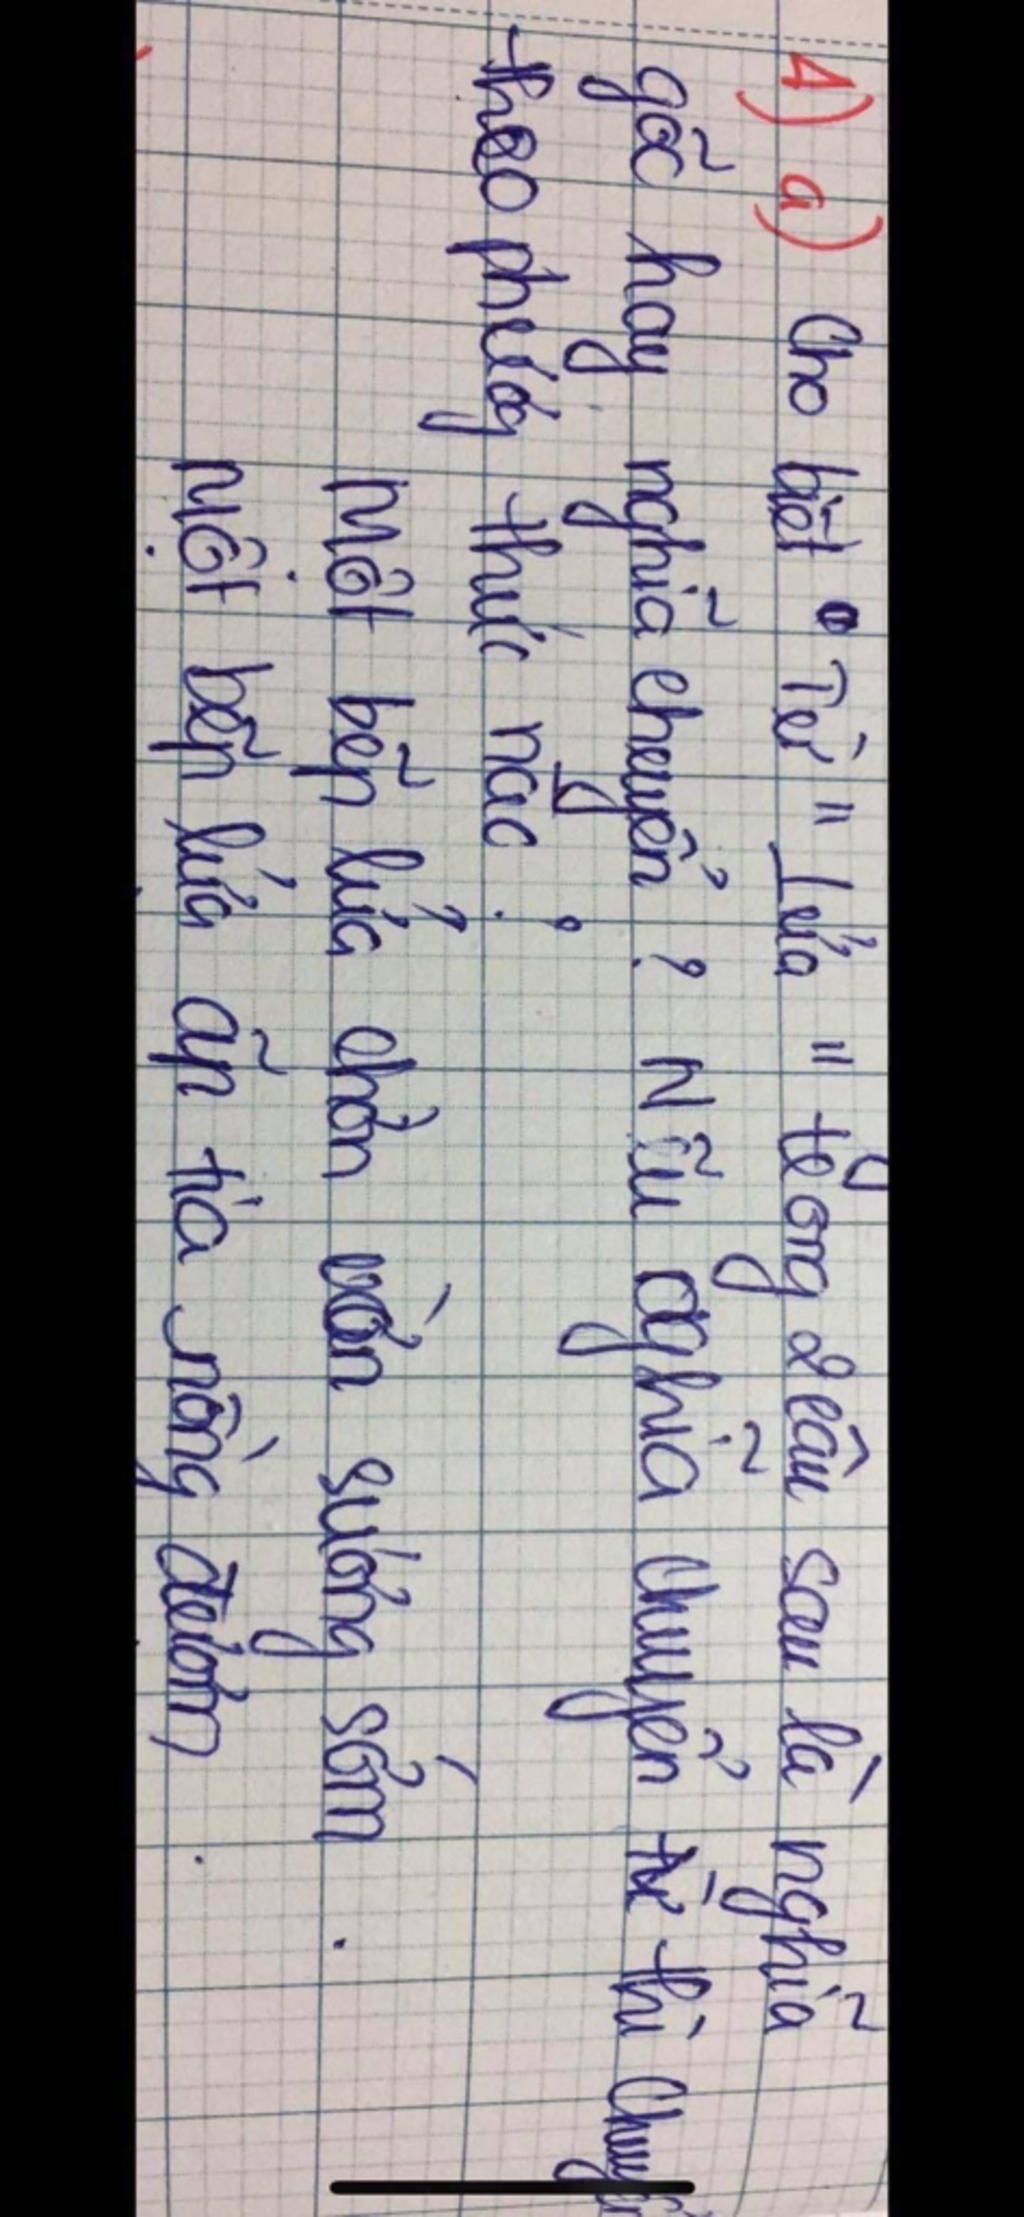 1) a) Cho biết Từ " Lửa " trong 2 câu sau là nghĩa
gốc hay nghĩa chuyển ? Nếu nghĩa chuyển từ thì Chuyển
theo phương thức nào ?
Một bếp lửa chờn vờn sương sớm .
Một bếp lửa ấp iu nồng đượm .